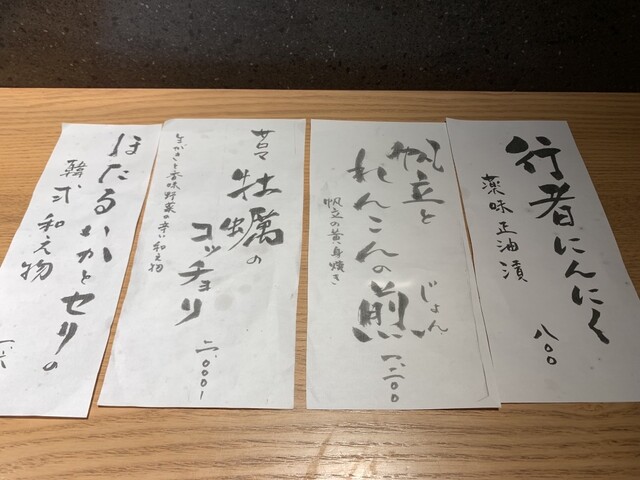 行者にんにく
薬味正油漬
八〇〇
帆立と
れんこんの煎
じょん
帆立の黄身焼き
一、二〇〇
牡蠣の
コッチョリ
生がきと香味野菜の辛い和え物
ほたるいかとセリの
韓式和え物